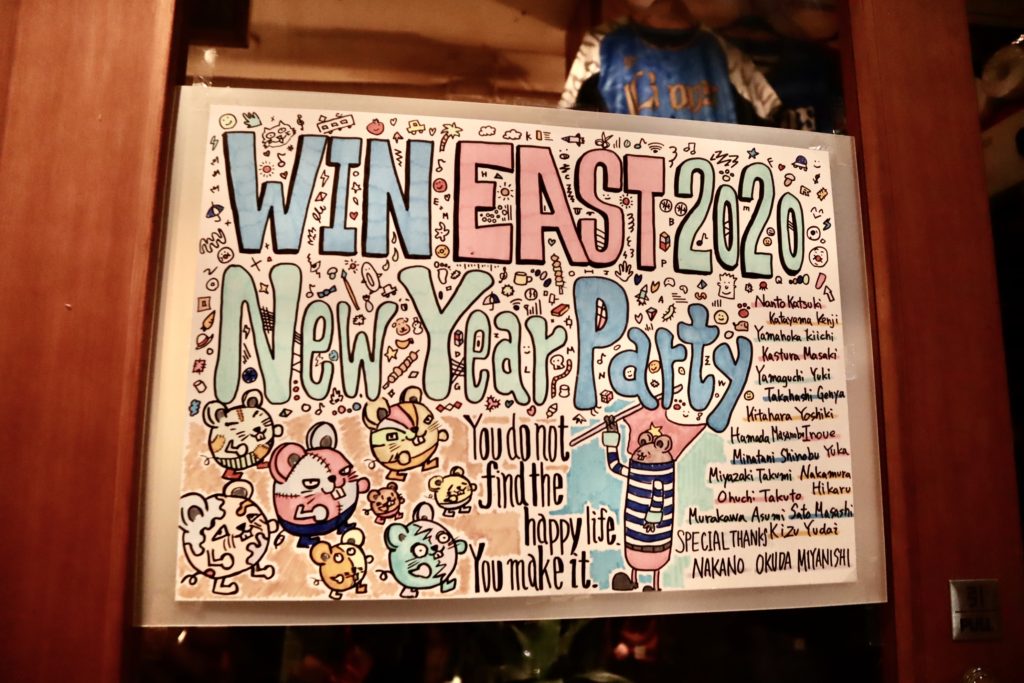 WIN EAST 2020
New Year Party
Nanto Katsuki
Katayama Kenji
Yamahoka Kiichi
Kastura Masaki
Yamaguchi Yuki
Takahashi Genya
Kitahara Yoshiki
Hamada Masanobu Inoue
Minatani Shinobu Yuka
Miyazaki Takumi Nakamura
Ohuchi Takuto Hikaru
Murakawa Asumi Sato Masashi
Kizu Yudai
SPECIAL THANKS
NAKANO OKUDA MIYANISHI
You do not
find the
happy life.
You make it.
引
PULL